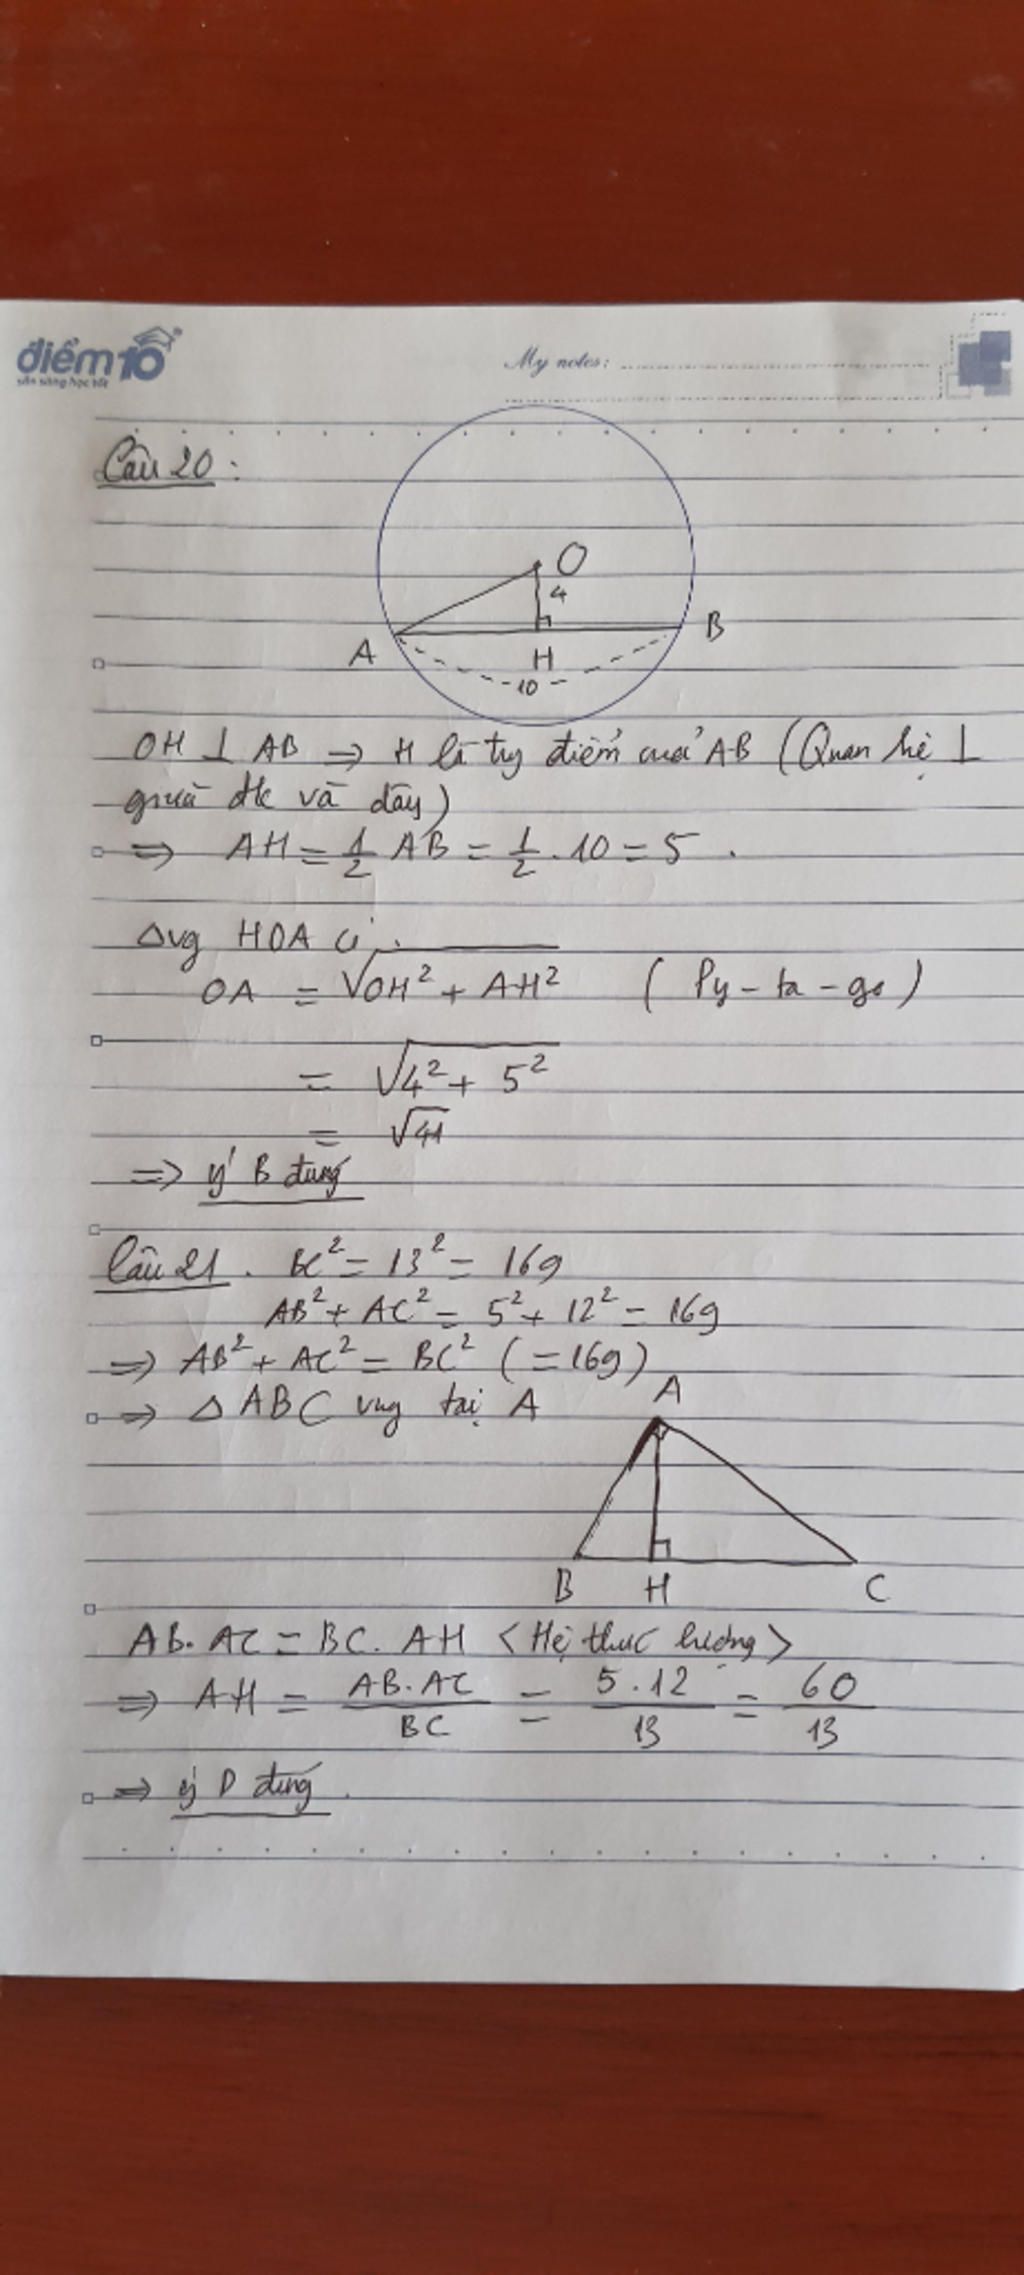 điểm10
sẵn sàng học tốt
My notes:
Câu 20:
O
4
A
H
B
10
OH ⊥ AB ⇒ H là trg điểm của AB (Quan hệ ⊥
giữa đk và dây)
⇒ AH = 1/2 AB = 1/2 . 10 = 5 .
Δvg HOA có:
OA = √(OH² + AH²) (Py-ta-go)
= √(4² + 5²)
= √41
⇒ ý B đúng
Câu 21. BC² = 13² = 169
AB² + AC² = 5² + 12² = 169
⇒ AB² + AC² = BC² (=169)
⇒ Δ ABC vng tại A
A
B
H
C
AB. AC = BC. AH <Hệ thức lượng>
⇒ AH = AB.AC/BC = 5.12/13 = 60/13
⇒ ý D đúng.